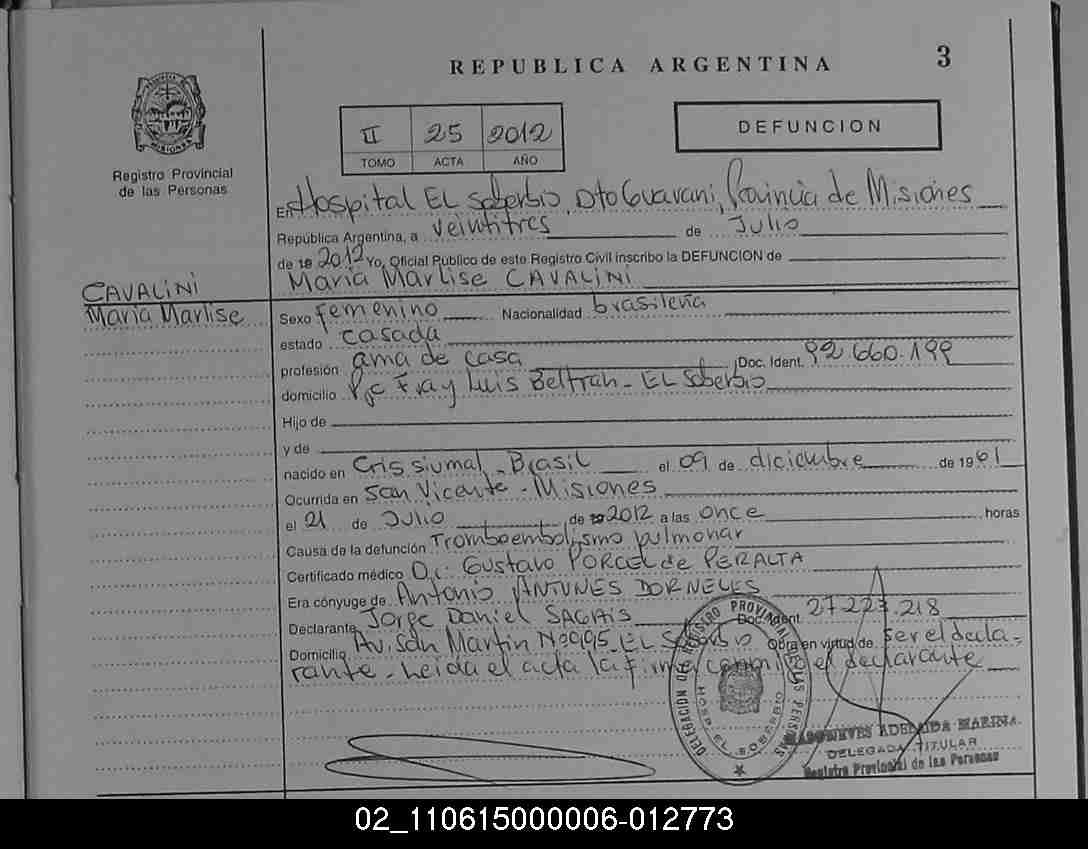 REPUBLICA ARGENTINA
3
II 25 2012
TOMO ACTA AÑO
DEFUNCION
Registro Provincial
de las Personas
En Hospital EL Soberbio, Dto Guarani, Provincia de Misiones
República Argentina, a veintitres de Julio
de 19 2012 Yo, Oficial Publico de este Registro Civil inscribo la DEFUNCION de
Maria Marlise CAVALINI
CAVALINI
Maria Marlise
Sexo femenino Nacionalidad brasileña
estado casada
profesión ama de casa Doc. Ident. 92.660.199
domicilio Pje Fray Luis Beltran - EL Soberbio
Hijo de
y de
nacido en Crissiumal - Brasil el 09 de diciembre de 1961
Ocurrida en San Vicente - Misiones
el 21 de Julio de 19 2012 a las once horas
Causa de la defunción Tromboembolismo pulmonar
Certificado médico Dr. Gustavo PORCEL de PERALTA
Era cónyuge de Antonio ANTUNES DORNELES
Declarante Jorge Daniel SAGAIS Doc. Ident. 27.223.218
Domicilio Av. San Martin N° 995 - EL Soberbio Obra en virtud de ser el decla-
rante - Leida el acta la firma conmigo el declarante
DELEGACION DEL REGISTRO PROVINCIAL DE LAS PERSONAS
HOSP. EL SOBERBIO
ADELAIDA MARINA
DELEGADA TITULAR
Registro Provincial de las Personas
02_110615000006-012773